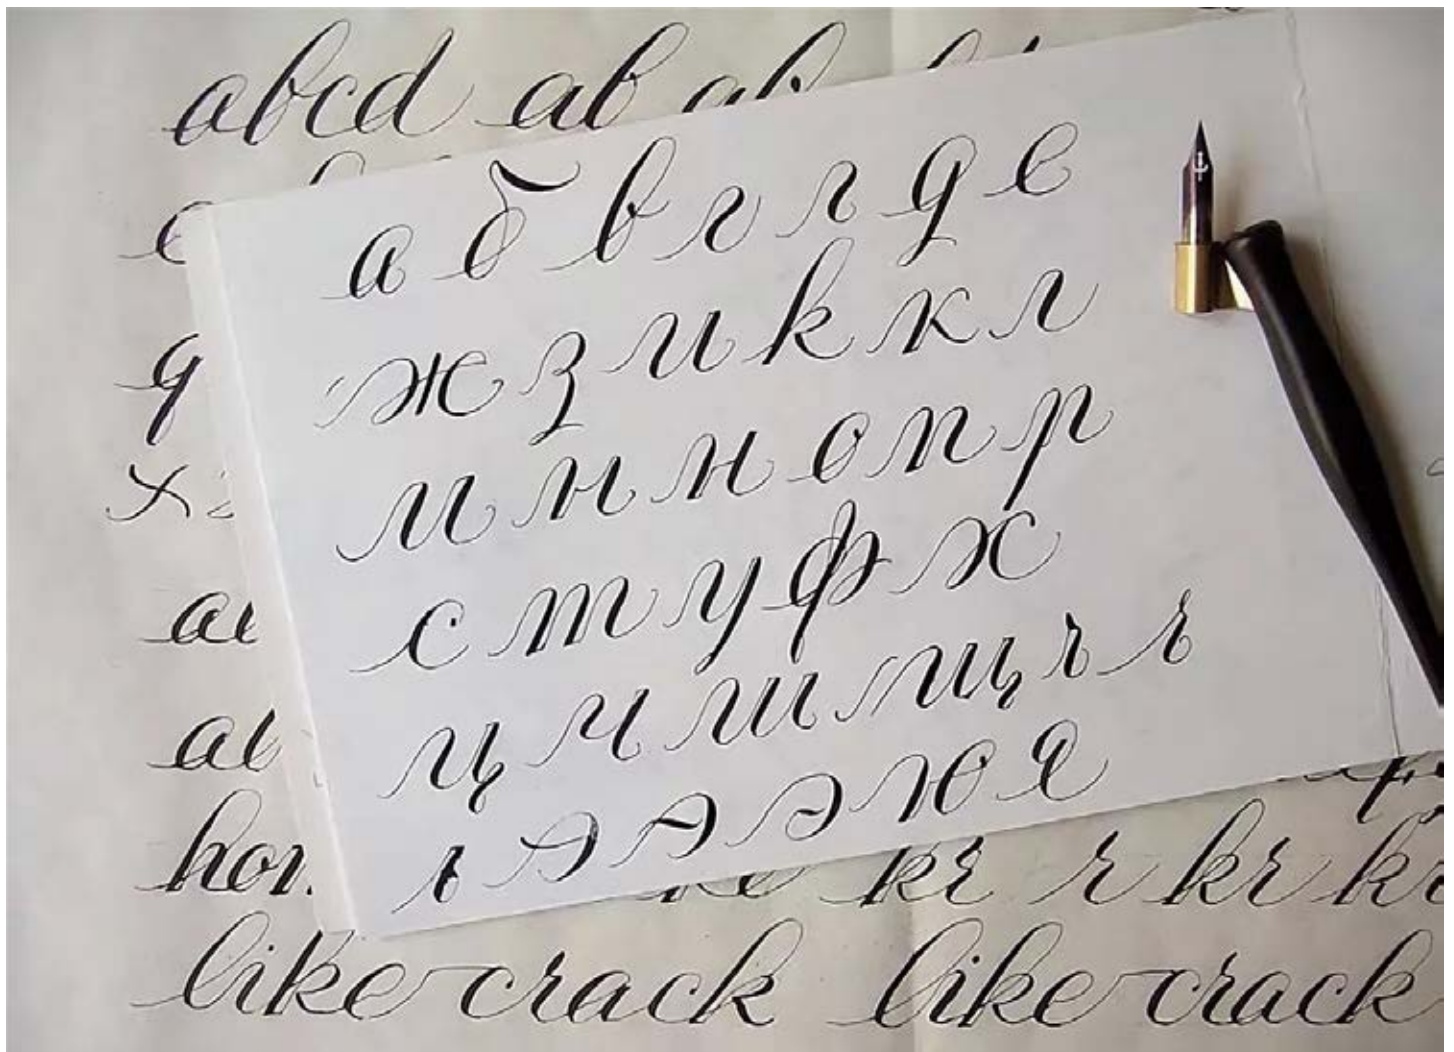 abcd ab ab
а б в г г д е
ж з и к к л
м н н о п р
с т у ф х
ц ч ш щ ъ ъ
ь э э э ю я
kr r kr
like crack like crack